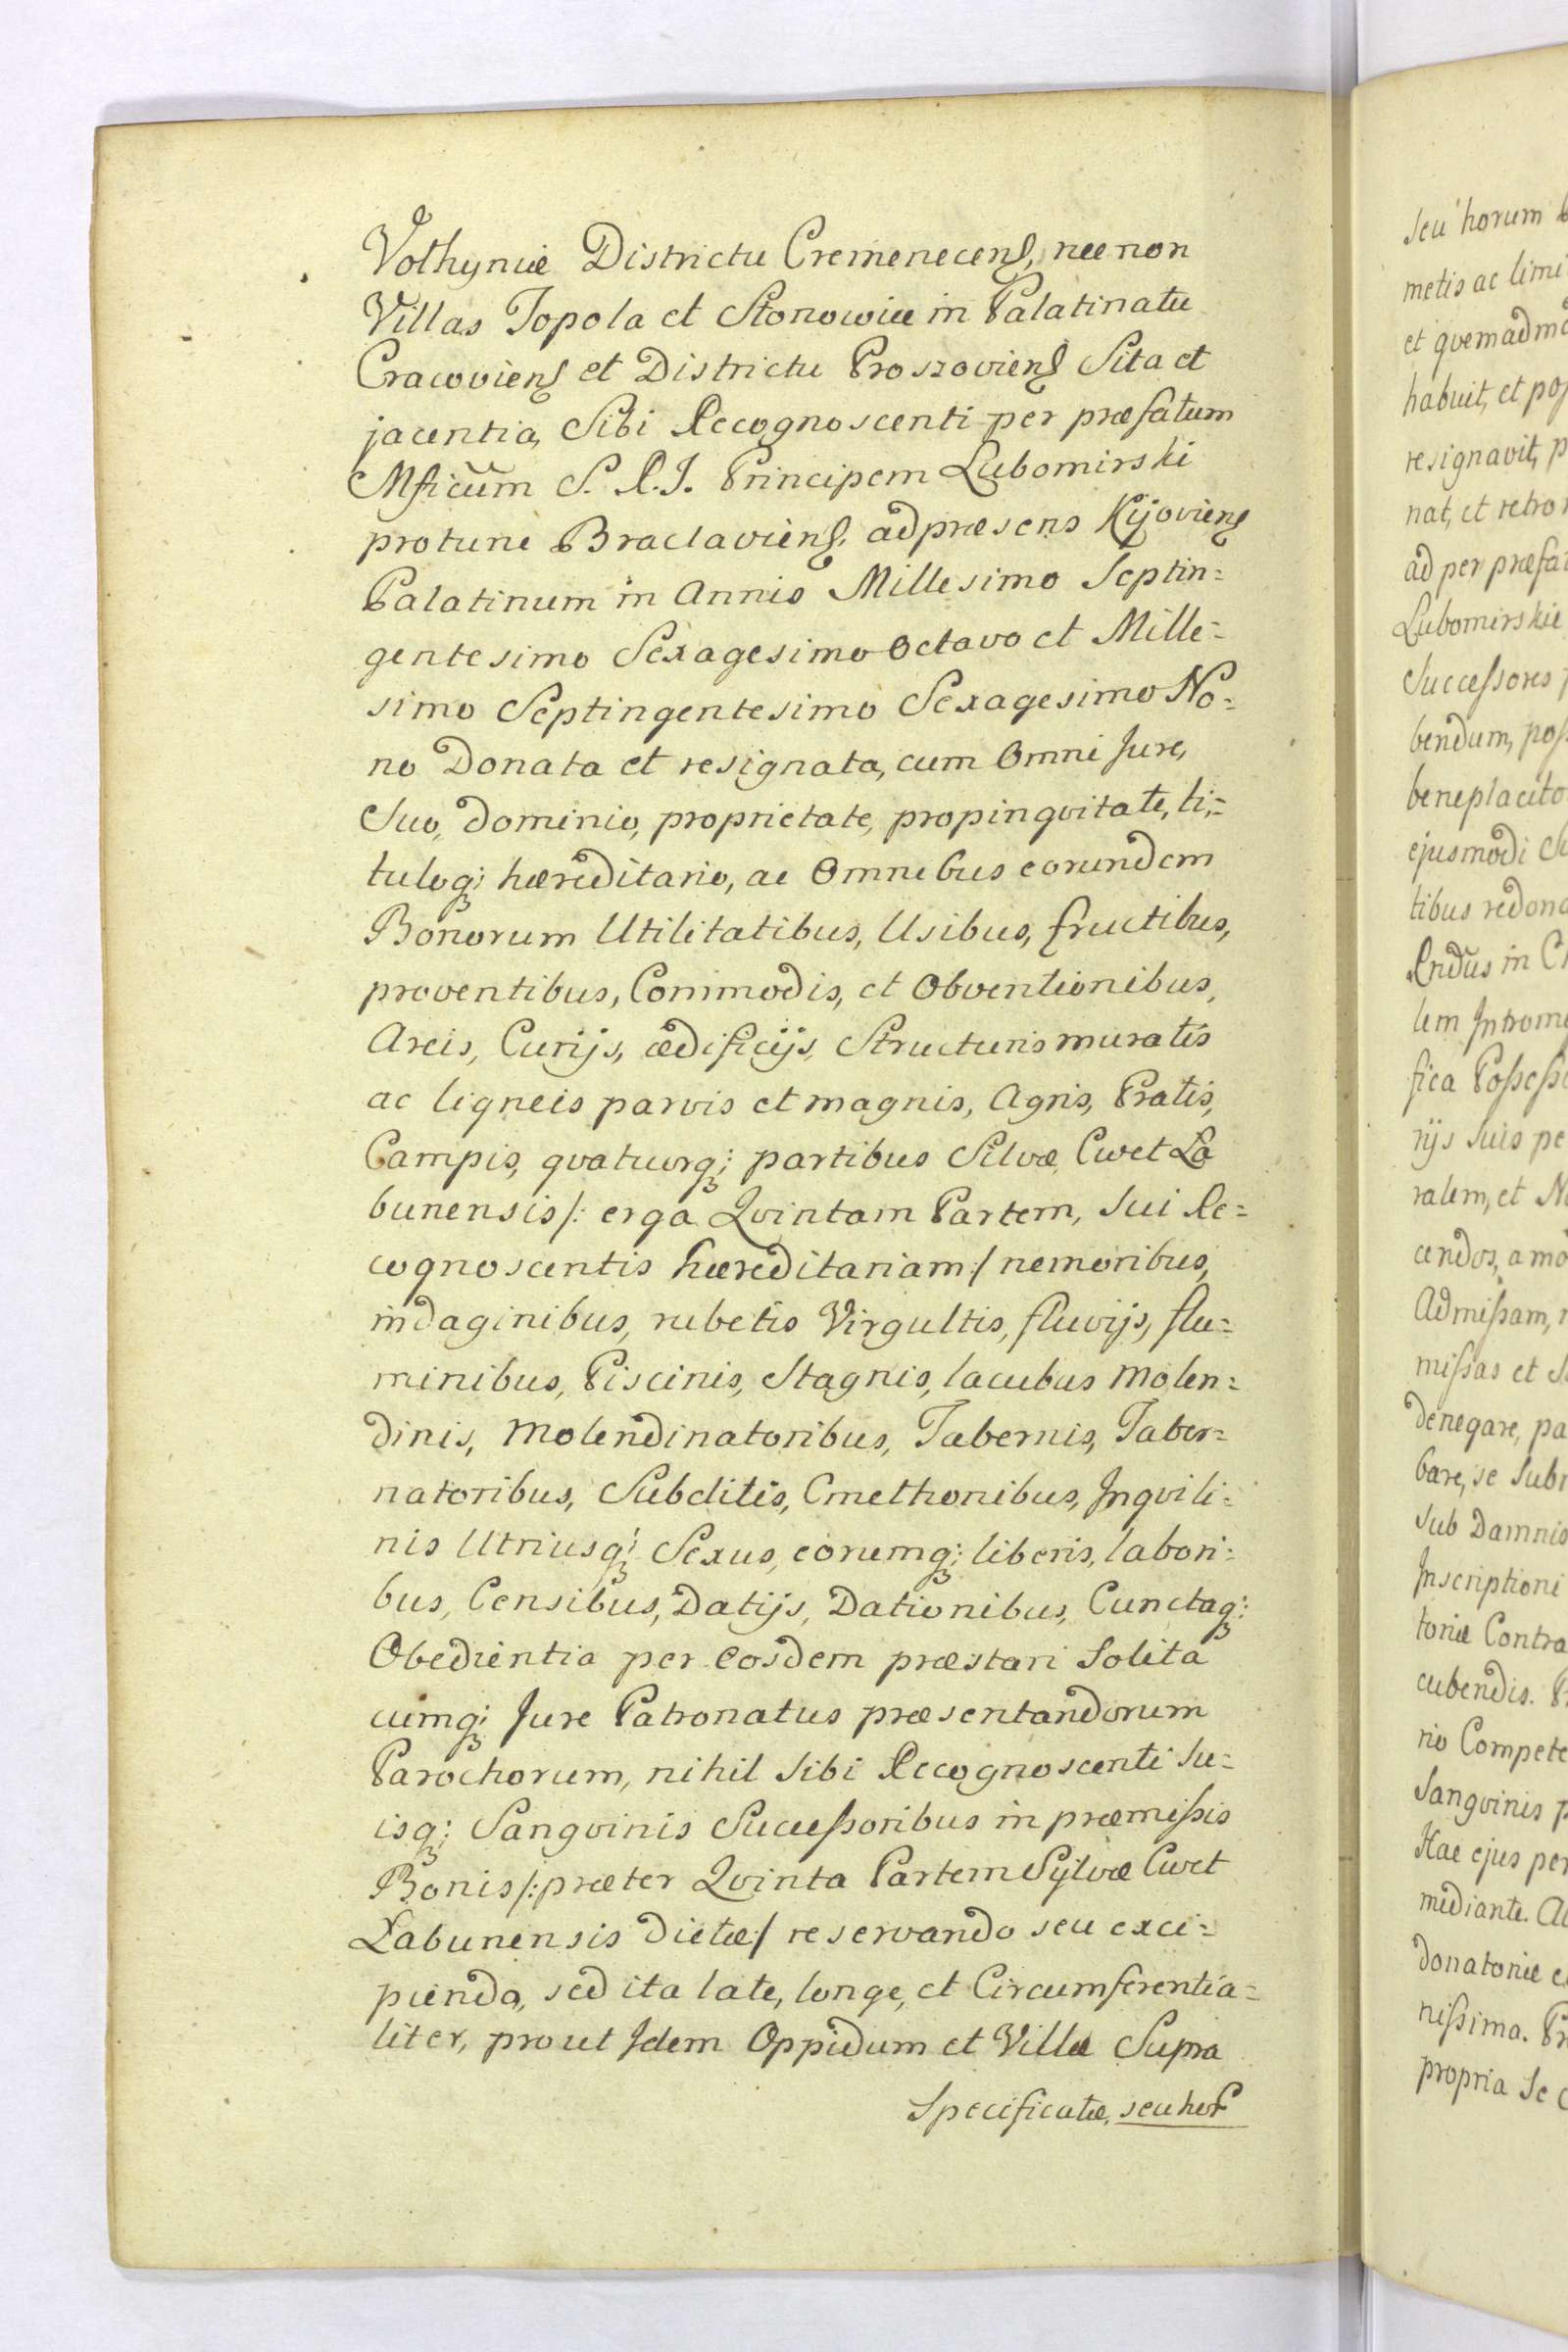 Volhyniæ Districtu Cremenecens, nec non
Villas Topola et Stonowice in Palatinatu
Cracoviens et Districtu Proszoviens Sita et
jacentia, Sibi Recognoscenti per præfatum
Mficum S. R. I. Principem Lubomirski
protunc Braclaviens, ad præsens Kijoviens
Palatinum in Annis Millesimo Septin=
gentesimo Sexagesimo Octavo et Mille=
simo Septingentesimo Sexagesimo No=
no Donata et resignata, cum Omni Jure,
Suo, Dominio, proprietate, propinqvitate, ti,=
tuloq; hæreditario, ac Omnibus eorundem
Bonorum Utilitatibus, Usibus, fructibus,
proventibus, Commodis, et Obventionibus,
Arcis, Curijs, ædificijs, Structuris muratis
ac ligneis parvis et magnis, Agris, Pratis,
Campis, qvatuorq; partibus Silvæ Cwet La
bunensis /: erga Qvintam Partem, Sui Re=
cognoscentis hæreditariam :/ nemoribus,
indaginibus, rubetis Virgultis, fluvijs, flu=
minibus, Piscinis, Stagnis, lacubus Molen=
dinis, Molendinatoribus, Tabernis, Taber=
natoribus, Subditis, Cmethonibus, Inqvili=
nis Utriusq; Sexus, eorumq; liberis, labori=
bus, Censibus, Datijs, Dationibus, Cunctaq;
Obedientia per Eosdem præstari Solita
cumq; Jure Patronatus præsentandorum
Parochorum, nihil Sibi Recognoscenti Su=
isq; Sangvinis Successoribus in præmissis
Bonis /: præter Qvinta Partem Sylvæ Cwet
Labunensis dictæ :/ reservando seu exci=
piendo, sed ita late, longe, et Circumferentia=
liter, prout Idem Oppidum et Villæ Supra
Specificatæ, seu hor
seu horum
metis ac limi
et qvemadmo
habuit, et pos
resignavit, p
nat, et retro
ad per præfa
Lubomirskie
Successores
bendum, pos
beneplacito
ejusmodi Su
tibus redona
Rndus in C
lem Introm
fica Possessi
rijs Suis pe
ralem, et N
cendos, amo
Admissam,
missas et S
denegare, pa
bare, se Subi
Sub Damnis
Inscriptioni
toriæ Contra
cubendis. P
rio Compete
Sangvinis p
Hac ejus per
mediante. Ac
donatoriæ e
nissima. Pr
propria Se